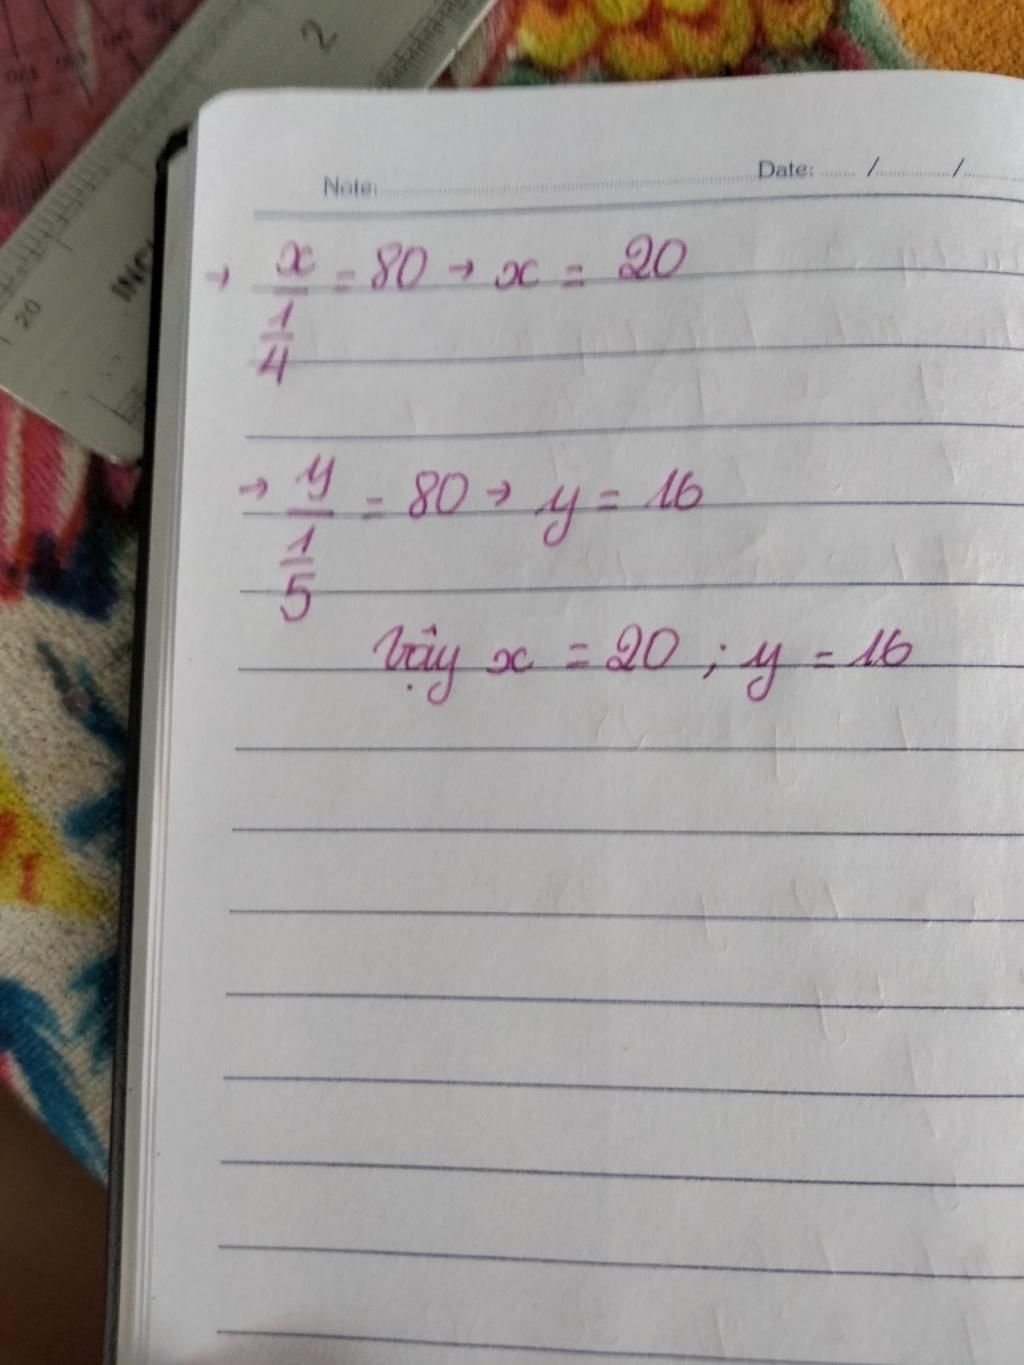 2
20
INC
Note:
Date: / /
→ x/(1/4) = 80 → x = 20
→ y/(1/5) = 80 → y = 16
Vậy x = 20 ; y = 16